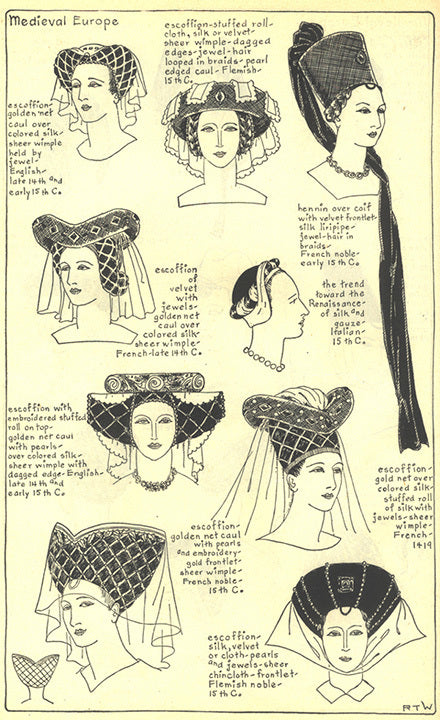 Medieval Europe
escoffion-stuffed roll-
cloth, silk or velvet-
sheer wimple-dagged
edges-jewel-hair
looped in braids-pearl
edged caul-Flemish-
15th C.
escoffion-
golden net
caul over
colored silk-
sheer wimple
held by
jewel-
English-
late 14th and
early 15th C.
hennin over coif
with velvet frontlet-
silk liripipe-
jewel-hair in
braids-
French noble-
early 15th C.
escoffion
of
velvet
with
jewels-
golden net
caul over
colored silk-
sheer wimple-
French-late 14th C.
the trend
toward the
Renaissance-
of silk and
gauze-
Italian-
15th C.
escoffion with
embroidered stuffed
roll on top-
golden net caul
with pearls-
over colored silk-
sheer wimple with
dagged edge-English-
late 14th and
early 15th C.
escoffion-
gold net over
colored silk-
stuffed roll
of silk with
jewels-sheer
wimple-
French-
1419
escoffion-
golden net caul
with pearls
and embroidery-
gold frontlet-
sheer wimple-
French noble-
15th C.
escoffion-
silk, velvet
or cloth-pearls
and jewels-sheer
chincloth-frontlet-
Flemish noble-
15th C.
RTW